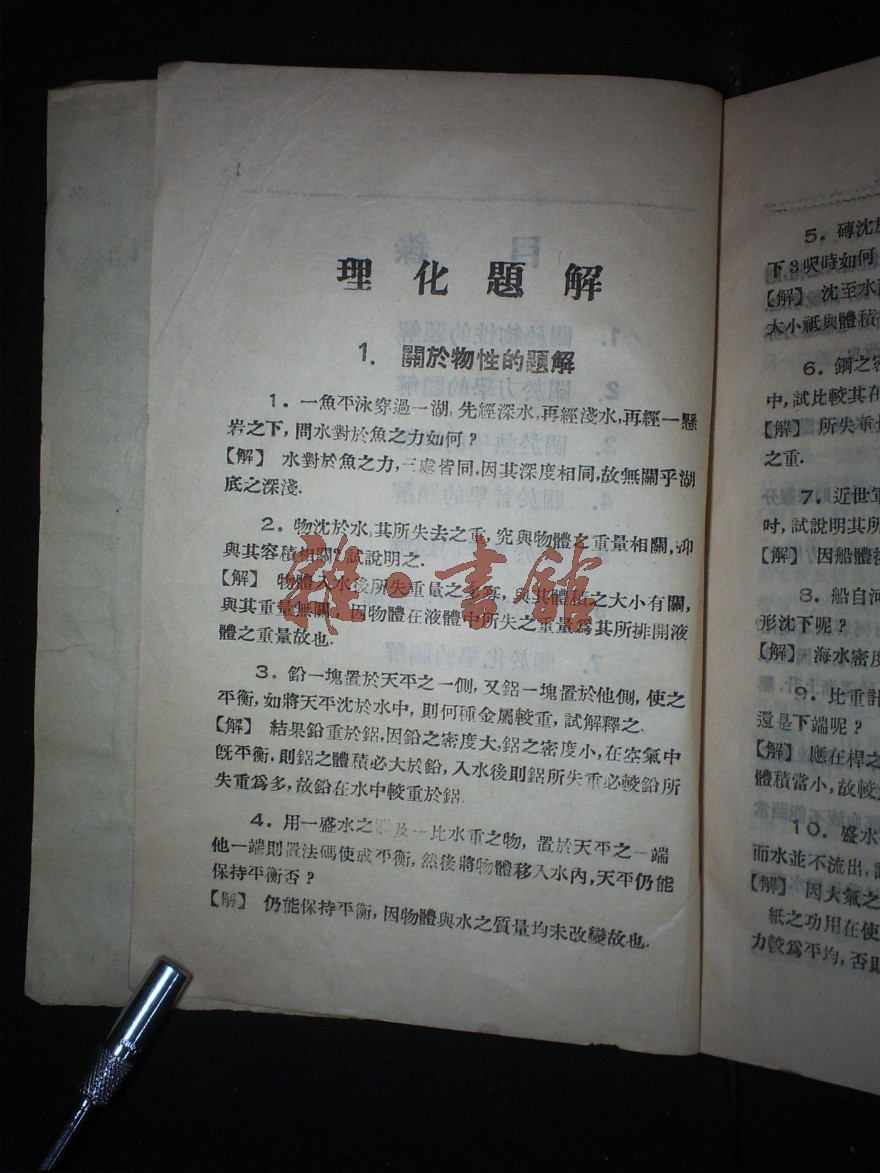 理化題解
1. 關於物性的題解
1. 一魚平泳穿過一湖, 先經深水, 再經淺水, 再經一懸
岩之下, 問水對於魚之力如何?
【解】 水對於魚之力, 三處皆同, 因其深度相同, 故無關乎湖
底之深淺.
2. 物沈於水, 其所失去之重, 究與物體之重量相關, 抑
與其容積相關? 試說明之.
【解】 物體入水後所失重量之多寡, 與其體積之大小有關,
與其重量無關, 因物體在液體中所失之重量爲其所排開液
體之重量故也.
3. 鉛一塊置於天平之一側, 又鋁一塊置於他側, 使之
平衡, 如將天平沈於水中, 則何種金屬較重, 試解釋之.
【解】 結果鉛重於鋁, 因鉛之密度大, 鋁之密度小, 在空氣中
旣平衡, 則鋁之體積必大於鉛, 入水後則鋁所失重必較鉛所
失重爲多, 故鉛在水中較重於鋁.
4. 用一盛水之器及一比水重之物, 置於天平之一端
他一端則置法碼使成平衡, 然後將物體移入水內, 天平仍能
保持平衡否?
【解】 仍能保持平衡, 因物體與水之質量均未改變故也.
雜·書館
5. 磚沈於
下3呎時如何
【解】 沈至水
大小祇與體積
6. 鋼之密
中, 試比較其在
【解】 所失重量
之重.
7. 近世軍
时, 試說明其所
【解】 因船體
8. 船自河
形沈下呢?
【解】 海水密度
9. 比重計
還是下端呢?
【解】 應在桿之
體積當小, 故較
10. 盛水
而水並不流出,
【解】 因大氣之
紙之功用在使
力較爲平均, 否則